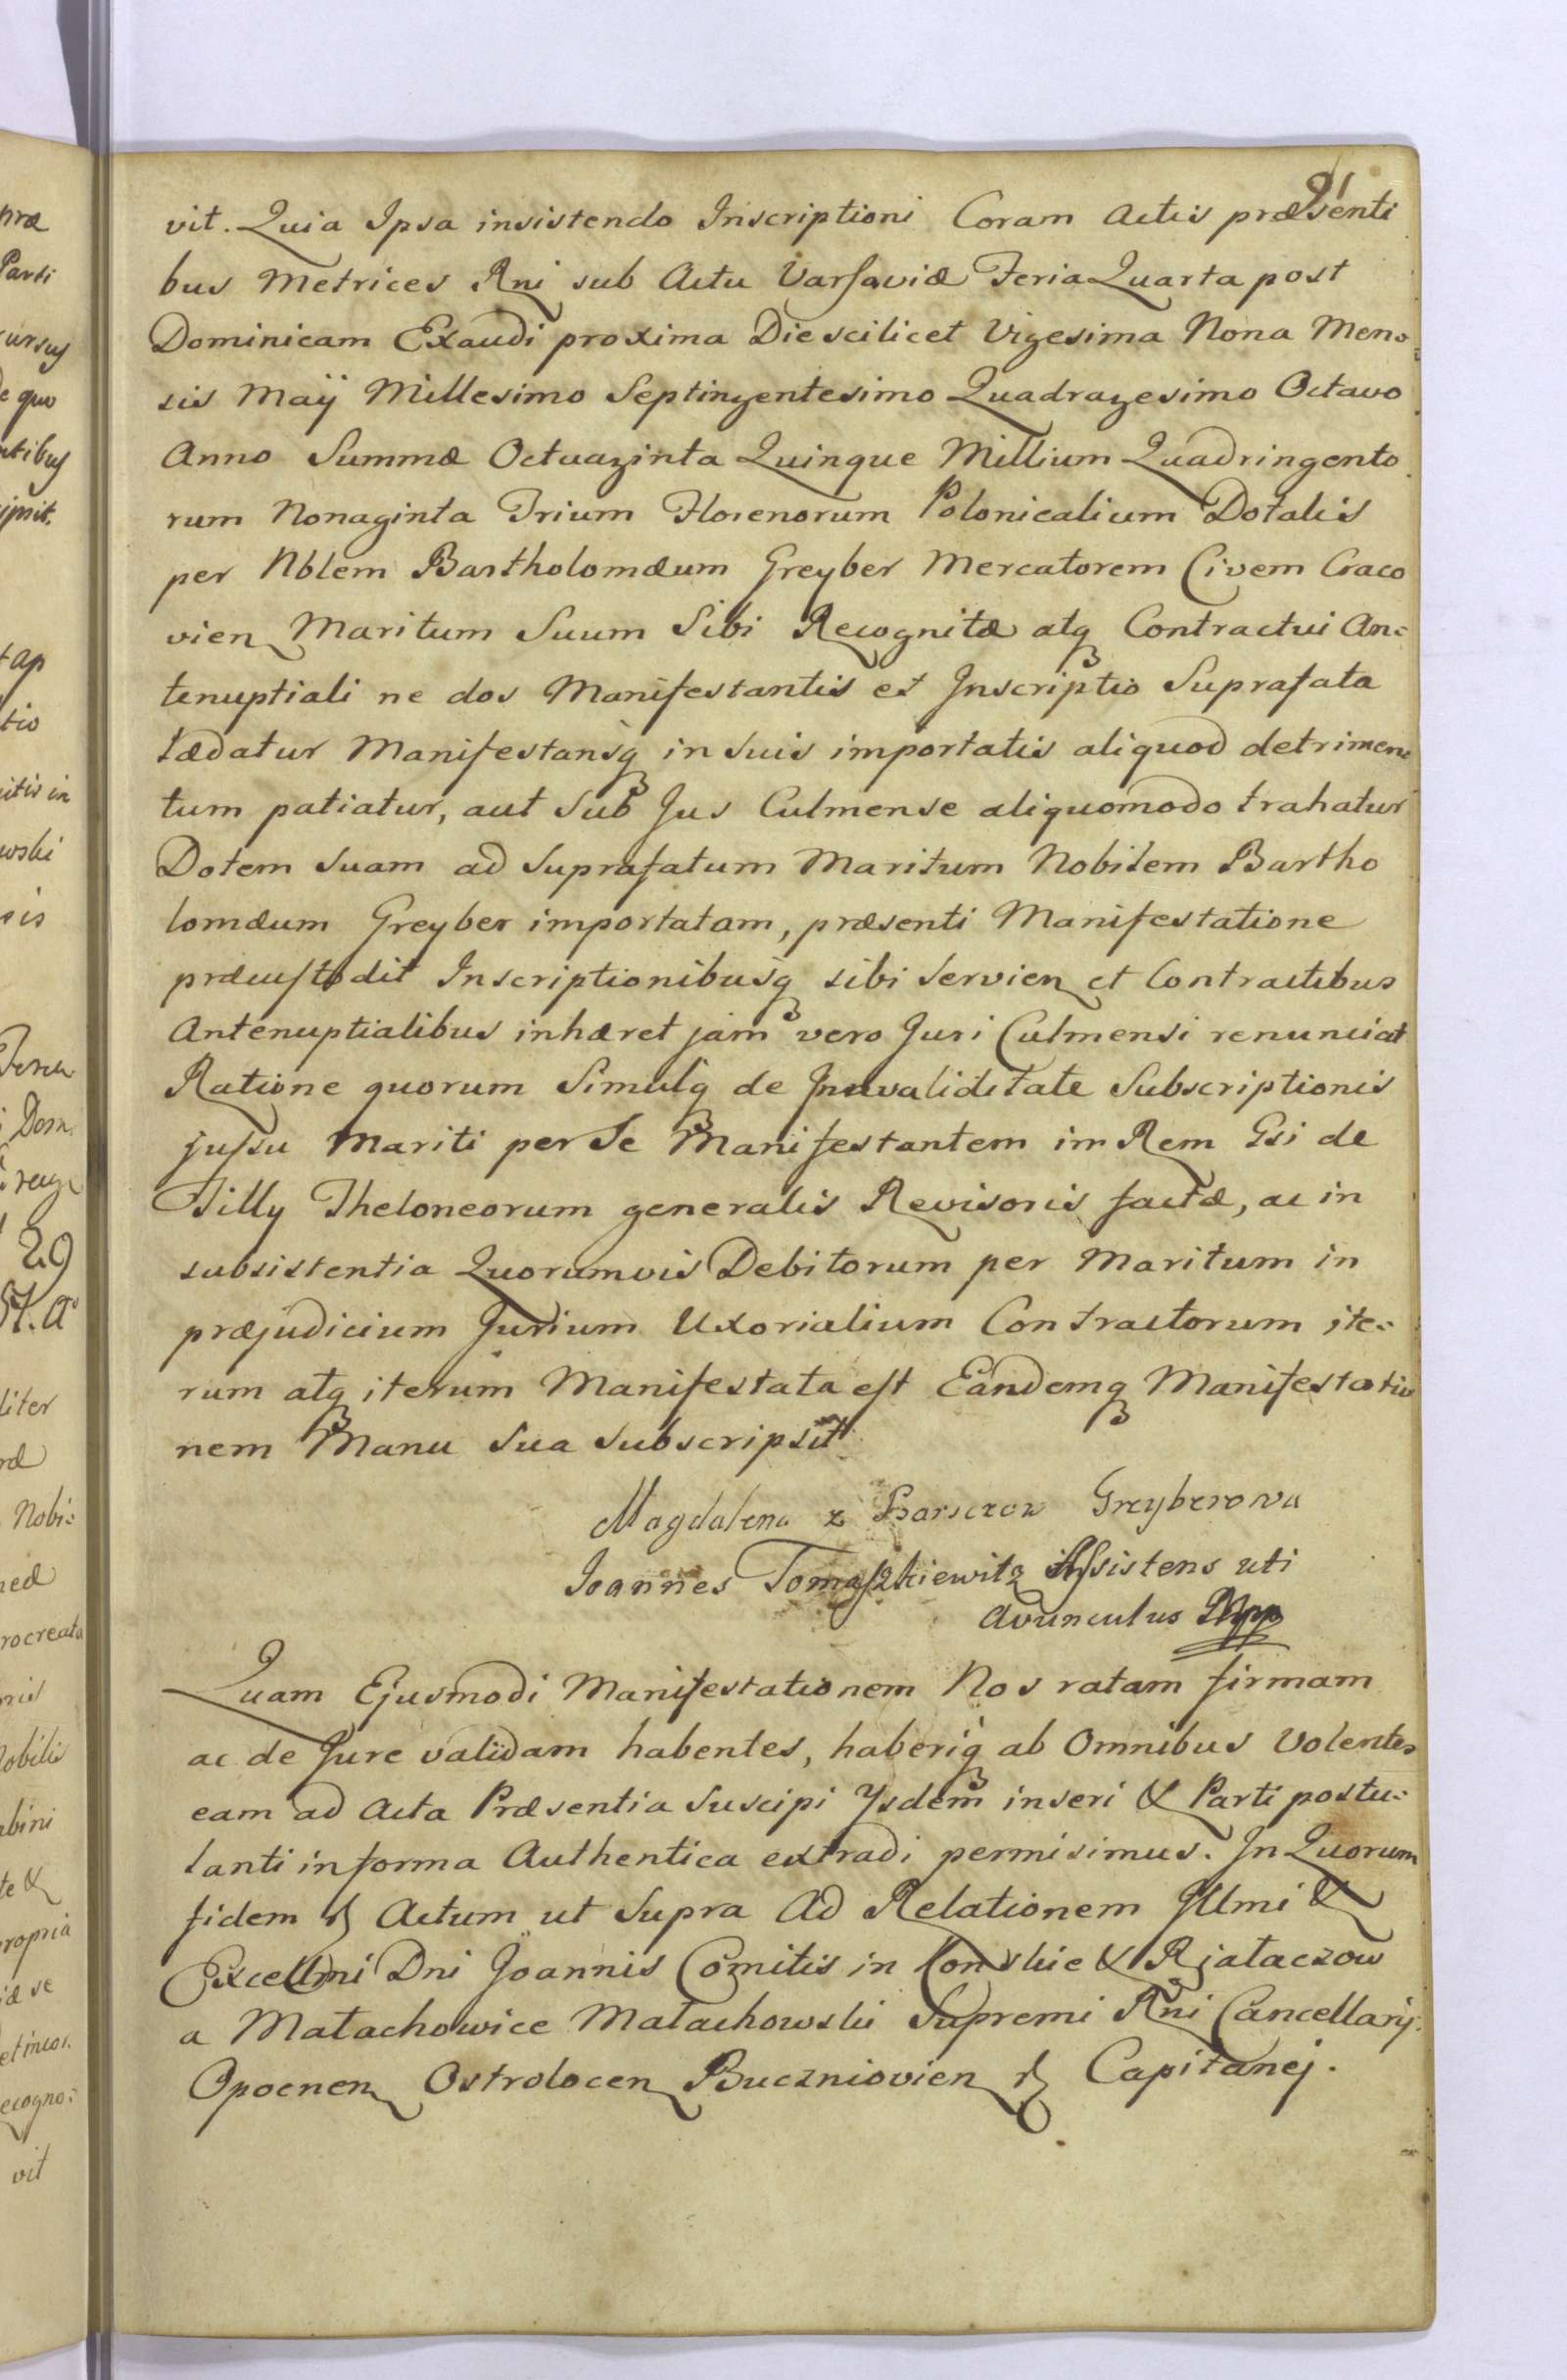 91
vit. Quia Ipsa insistendo Inscriptioni Coram Actis præsenti
bus Metrices Rni sub Actu Varsaviæ Feria Quarta post
Dominicam Exaudi proxima Die scilicet Vigesima Nona Men=
sis Maÿ Millesimo Septingentesimo Quadragesimo Octavo
Anno Summæ Octuaginta Quinque Millium Quadringento
rum Nonaginta Trium Florenorum Polonicalium Dotalis
per Nblem Bartholomæum Greyber Mercatorem Civem Craco
vien Maritum Suum Sibi Recognitæ atq Contractui An=
tenuptiali ne dos Manifestantis et Inscriptio Suprafata
lædatur Manifestansq in suis importatis aliquod detrimen=
tum patiatur, aut sub Jus Culmense aliquomodo trahatur
Dotem suam ad suprafatum Maritum Nobilem Bartho
lomæum Greyber importatam, præsenti Manifestatione
præcustodit Inscriptionibusq sibi servien et Contractibus
Antenuptialibus inhæret jam vero Juri Culmensi renunciat
Ratione quorum Simulq de Invaliditate Subscriptionis
jussu Mariti per Se Manifestantem im Rem Gsi de
Tilly Theloneorum generalis Revisoris factæ, ac in
subsistentia Quorumvis Debitorum per Maritum in
præjudicium Jurium Uxorialium Contractorum ite=
rum atq iterum Manifestata est Eandemq Manifestatio
nem Manu sua subscripsit
Magdalena z Greyberowa
Joannes Tomaszkiewitz Assistens uti
Avunculus Mpp
Quam Ejusmodi Manifestationem Nos ratam firmam
ac de Jure validam habentes, haberiq ab Omnibus Volentes
eam ad Acta Præsentia suscipi Ysdem inseri & Parti postu=
lanti in forma Authentica extradi permisimus. In Quorum
fidem Actum ut supra Ad Relationem Illmi &
Excellmi Dni Joannis Comitis in Konskie & Białaczow
a Małachowice Małachowski Supremi Rni Cancellarij
Opocnen Ostrolocen Buczniovien Capitanej.